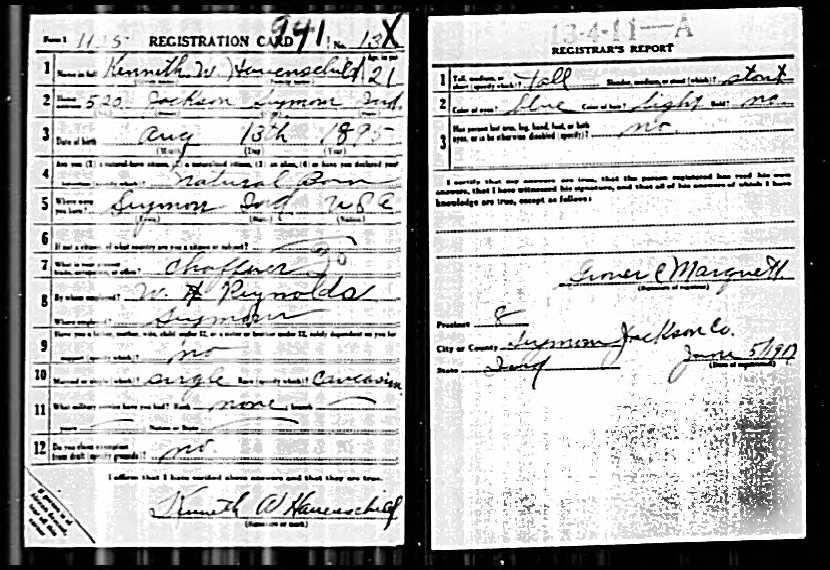 Form 1 1125 REGISTRATION CARD 941 No. 13 X
1 Name in full Kenneth W. Hauenschild Age, in yrs. 21
2 Home address 520 Jackson Seymour Ind.
3 Date of birth Aug 13th 1895
(Month) (Day) (Year)
4 Are you (1) a natural-born citizen, (2) a naturalized citizen, (3) an alien, (4) or have you declared your
intention (specify which)? Natural Born
5 Where were you born? Seymour Ind. U S A
(Town) (State) (Nation)
6 If not a citizen, of what country are you a citizen or subject?
7 What is your present trade, occupation, or office? Chaffuer
8 By whom employed? W. H Reynolds
Where employed? Seymour
9 Have you a father, mother, wife, child under 12, or a sister or brother under 12, solely dependent on you for
support (specify which)? no
10 Married or single (which)? single Race (specify which)? Caucasian
11 What military service have you had? Rank none branch
years Nation or State
12 Do you claim exemption from draft (specify grounds)? no.
I affirm that I have verified above answers and that they are true.
Kenneth W Hauenschild
(Signature or mark)
13-4-11-A
REGISTRAR'S REPORT
1 Tall, medium, or short (specify which)? Tall Slender, medium, or stout (which)? stout
2 Color of eyes? blue Color of hair? light Bald? no.
3 Has person lost arm, leg, hand, foot, or both eyes, or is he otherwise disabled (specify)? no.
I certify that my answers are true, that the person registered has read his own
answers, that I have witnessed his signature, and that all of his answers of which I have
knowledge are true, except as follows:
C Marquett
(Signature of registrar)
Precinct 8
City or County Seymour Jackson Co.
State Ind June 5/1917
(Date of registration)